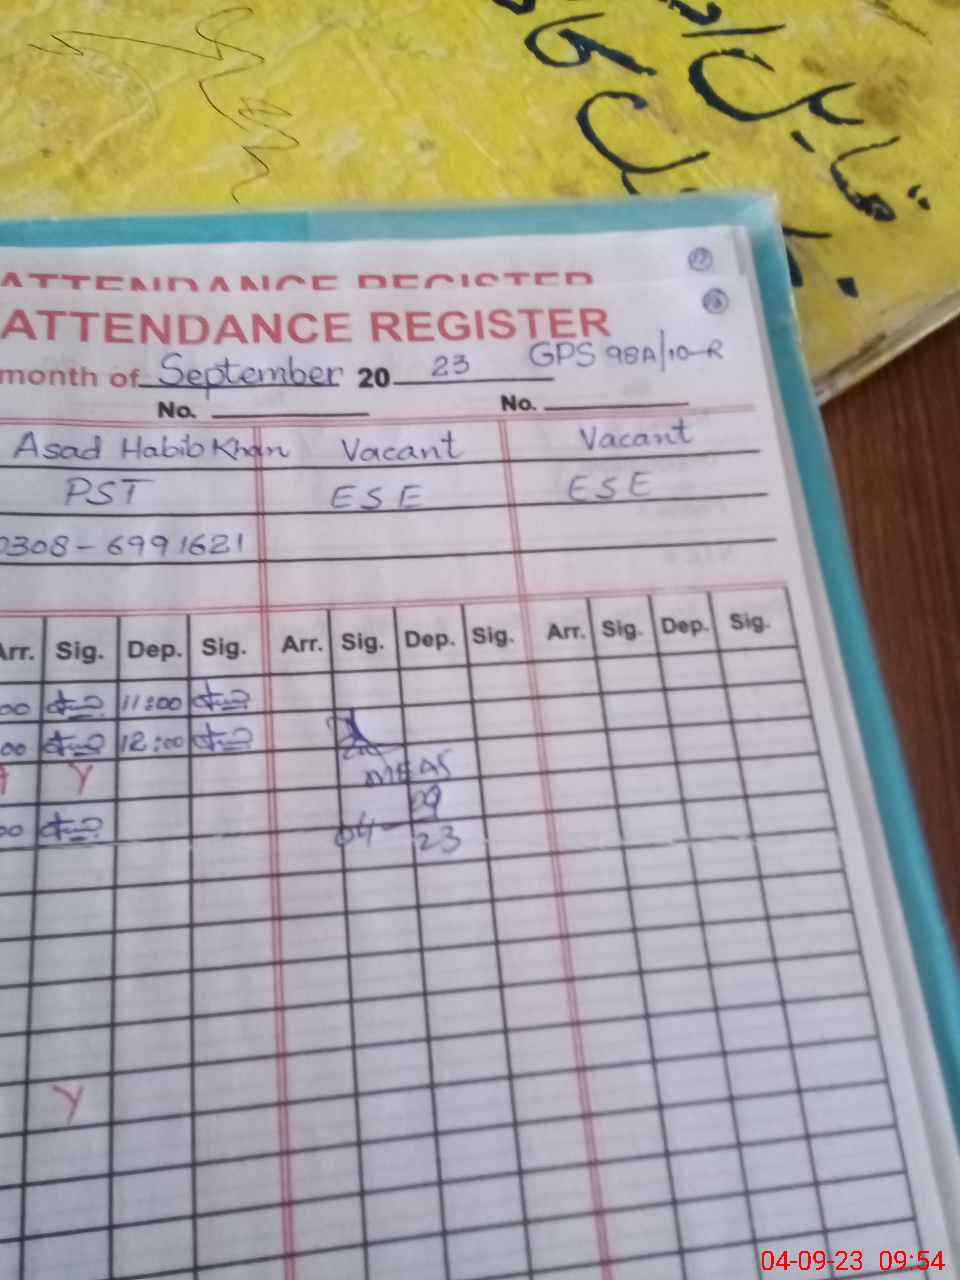 ATTENDANCE REGISTER
17
ATTENDANCE REGISTER
18
month of September 20 23 GPS 98A/10-R
No. No.
Asad Habib Khan Vacant Vacant
PST ESE ESE
0308-6991621
Arr. Sig. Dep. Sig. Arr. Sig. Dep. Sig. Arr. Sig. Dep. Sig.
00 11:00
00 12:00
Y
MEAS
00 09
04 23
Y
04-09-23 09:54